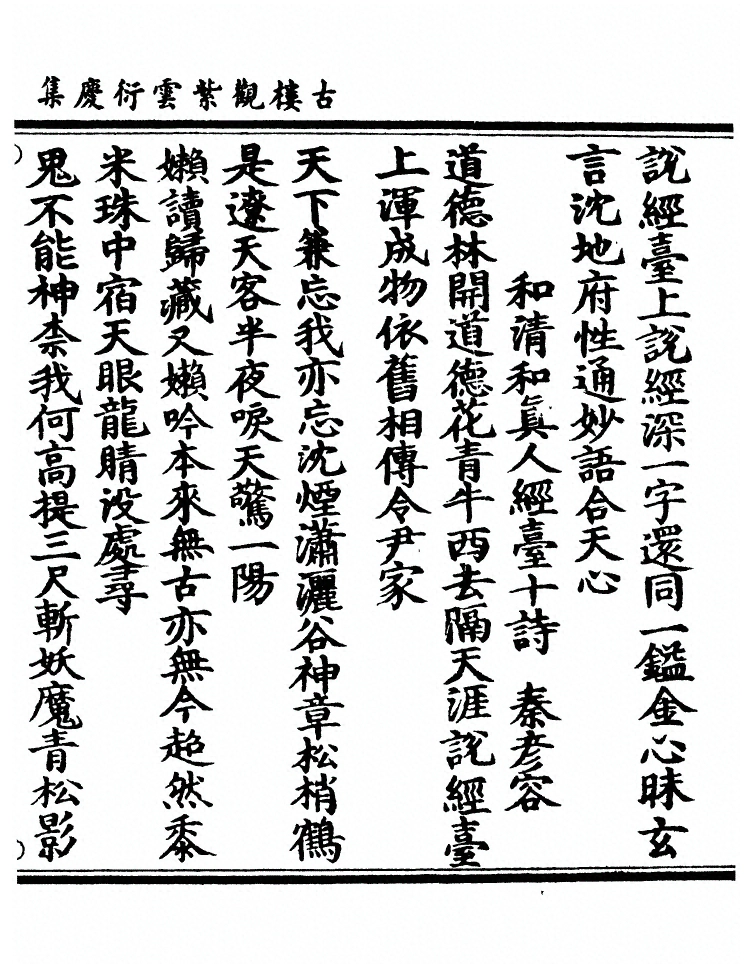 古樓觀紫雲衍慶集
說經臺上說經深一字還同一鎰金心昧玄
言沈地府性通妙語合天心
和清和眞人經臺十詩 秦彥容
道德林開道德花青牛西去隔天涯說經臺
上渾成物依舊相傳令尹家
天下兼忘我亦忘沈煙瀟灑谷神章松梢鶴
是遼天客半夜唳天驚一陽
嬾讀歸藏又嬾吟本來無古亦無今超然黍
米珠中宿天眼龍睛没處尋
鬼不能神柰我何高提三尺斬妖魔青松影